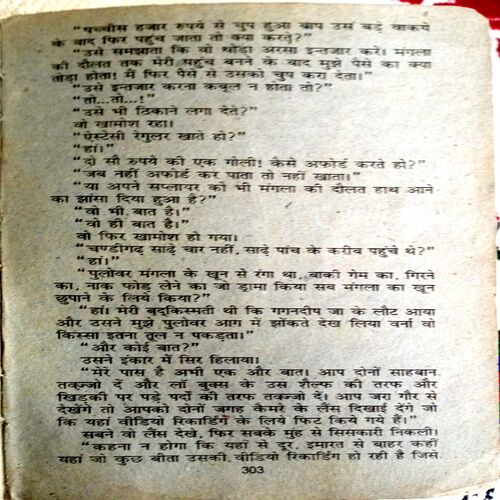 “पच्चीस हजार रुपये से चुप हुआ बाप उस बड़े वाकये
के बाद फिर पहुंच जाता तो क्या करते?”
“उसे समझाता कि वो थोड़ा अरसा इन्तजार करे। मंगला
की दौलत तक मेरी पहुंच बनने के बाद मुझे पैसे का क्या
तोड़ा होता! मैं फिर पैसे से उसको चुप करा देता।”
“उसे इन्तजार करना कबूल न होता तो?”
“तो...तो...!”
“उसे भी ठिकाने लगा देते?”
वो खामोश रहा।
“ऐस्टेसी रेगुलर खाते हो?”
“हां।”
“दो सौ रुपये की एक गोली! कैसे अफोर्ड करते हो?”
“जब नहीं अफोर्ड कर पाता तो नहीं खाता।”
“या अपने सप्लायर को भी मंगला की दौलत हाथ आने
का झांसा दिया हुआ है?”
“वो भी बात है।”
“वो ही बात है।”
वो फिर खामोश हो गया।
“चण्डीगढ़ साढ़े चार नहीं, साढ़े पांच के करीब पहुंचे थे?”
“हां।”
“पुलोवर मंगला के खून से रंगा था, बाकी गेम का, गिरने
का, नाक फोड़ लेने का जो ड्रामा किया सब मंगला का खून
छुपाने के लिये किया?”
“हां। मेरी बद्किस्मती थी कि गगनदीप जा के लौट आया
और उसने मुझे पुलोवर आग में झोंकते देख लिया वर्ना वो
किस्सा इतना तूल न पकड़ता।”
“और कोई बात?”
उसने इंकार में सिर हिलाया।
“मेरे पास है अभी एक और बात। आप दोनों साहबान
तवज्जो दें और लॉ बुक्स के उस शैल्फ की तरफ और
खिड़की पर पड़े पर्दों की तरफ तवज्जो दें। आप जरा गौर से
देखेंगे तो आपको दोनों जगह कैमरे के लैंस दिखाई देंगे जो
कि यहां वीडियो रिकार्डिंग के लिये फिट किये गये हैं।”
सबने वो लैंस देखे, फिर सबके मुंह से सिसकारी निकली।
“कहना न होगा कि यहां से दूर, इमारत से बाहर कहीं
यहां जो कुछ बीता उसकी वीडियो रिकार्डिंग हो रही है जिसे
303